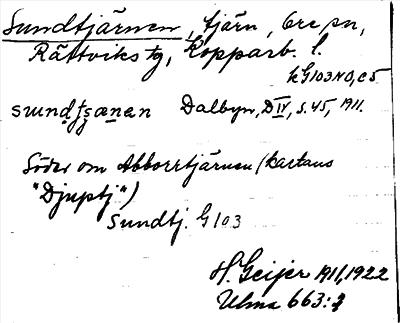 Sundtjärnen, tjärn, Ore sn,
Rättviks tg, Kopparb. l.
k G103NO, c5
Dalbyn, DIV, s. 45, 1911.
Söder om Abborrtjärnen (kartans
"Djuptj")
Sundtj. G103
H. Geijer 1911, 1922
Ulma 663: